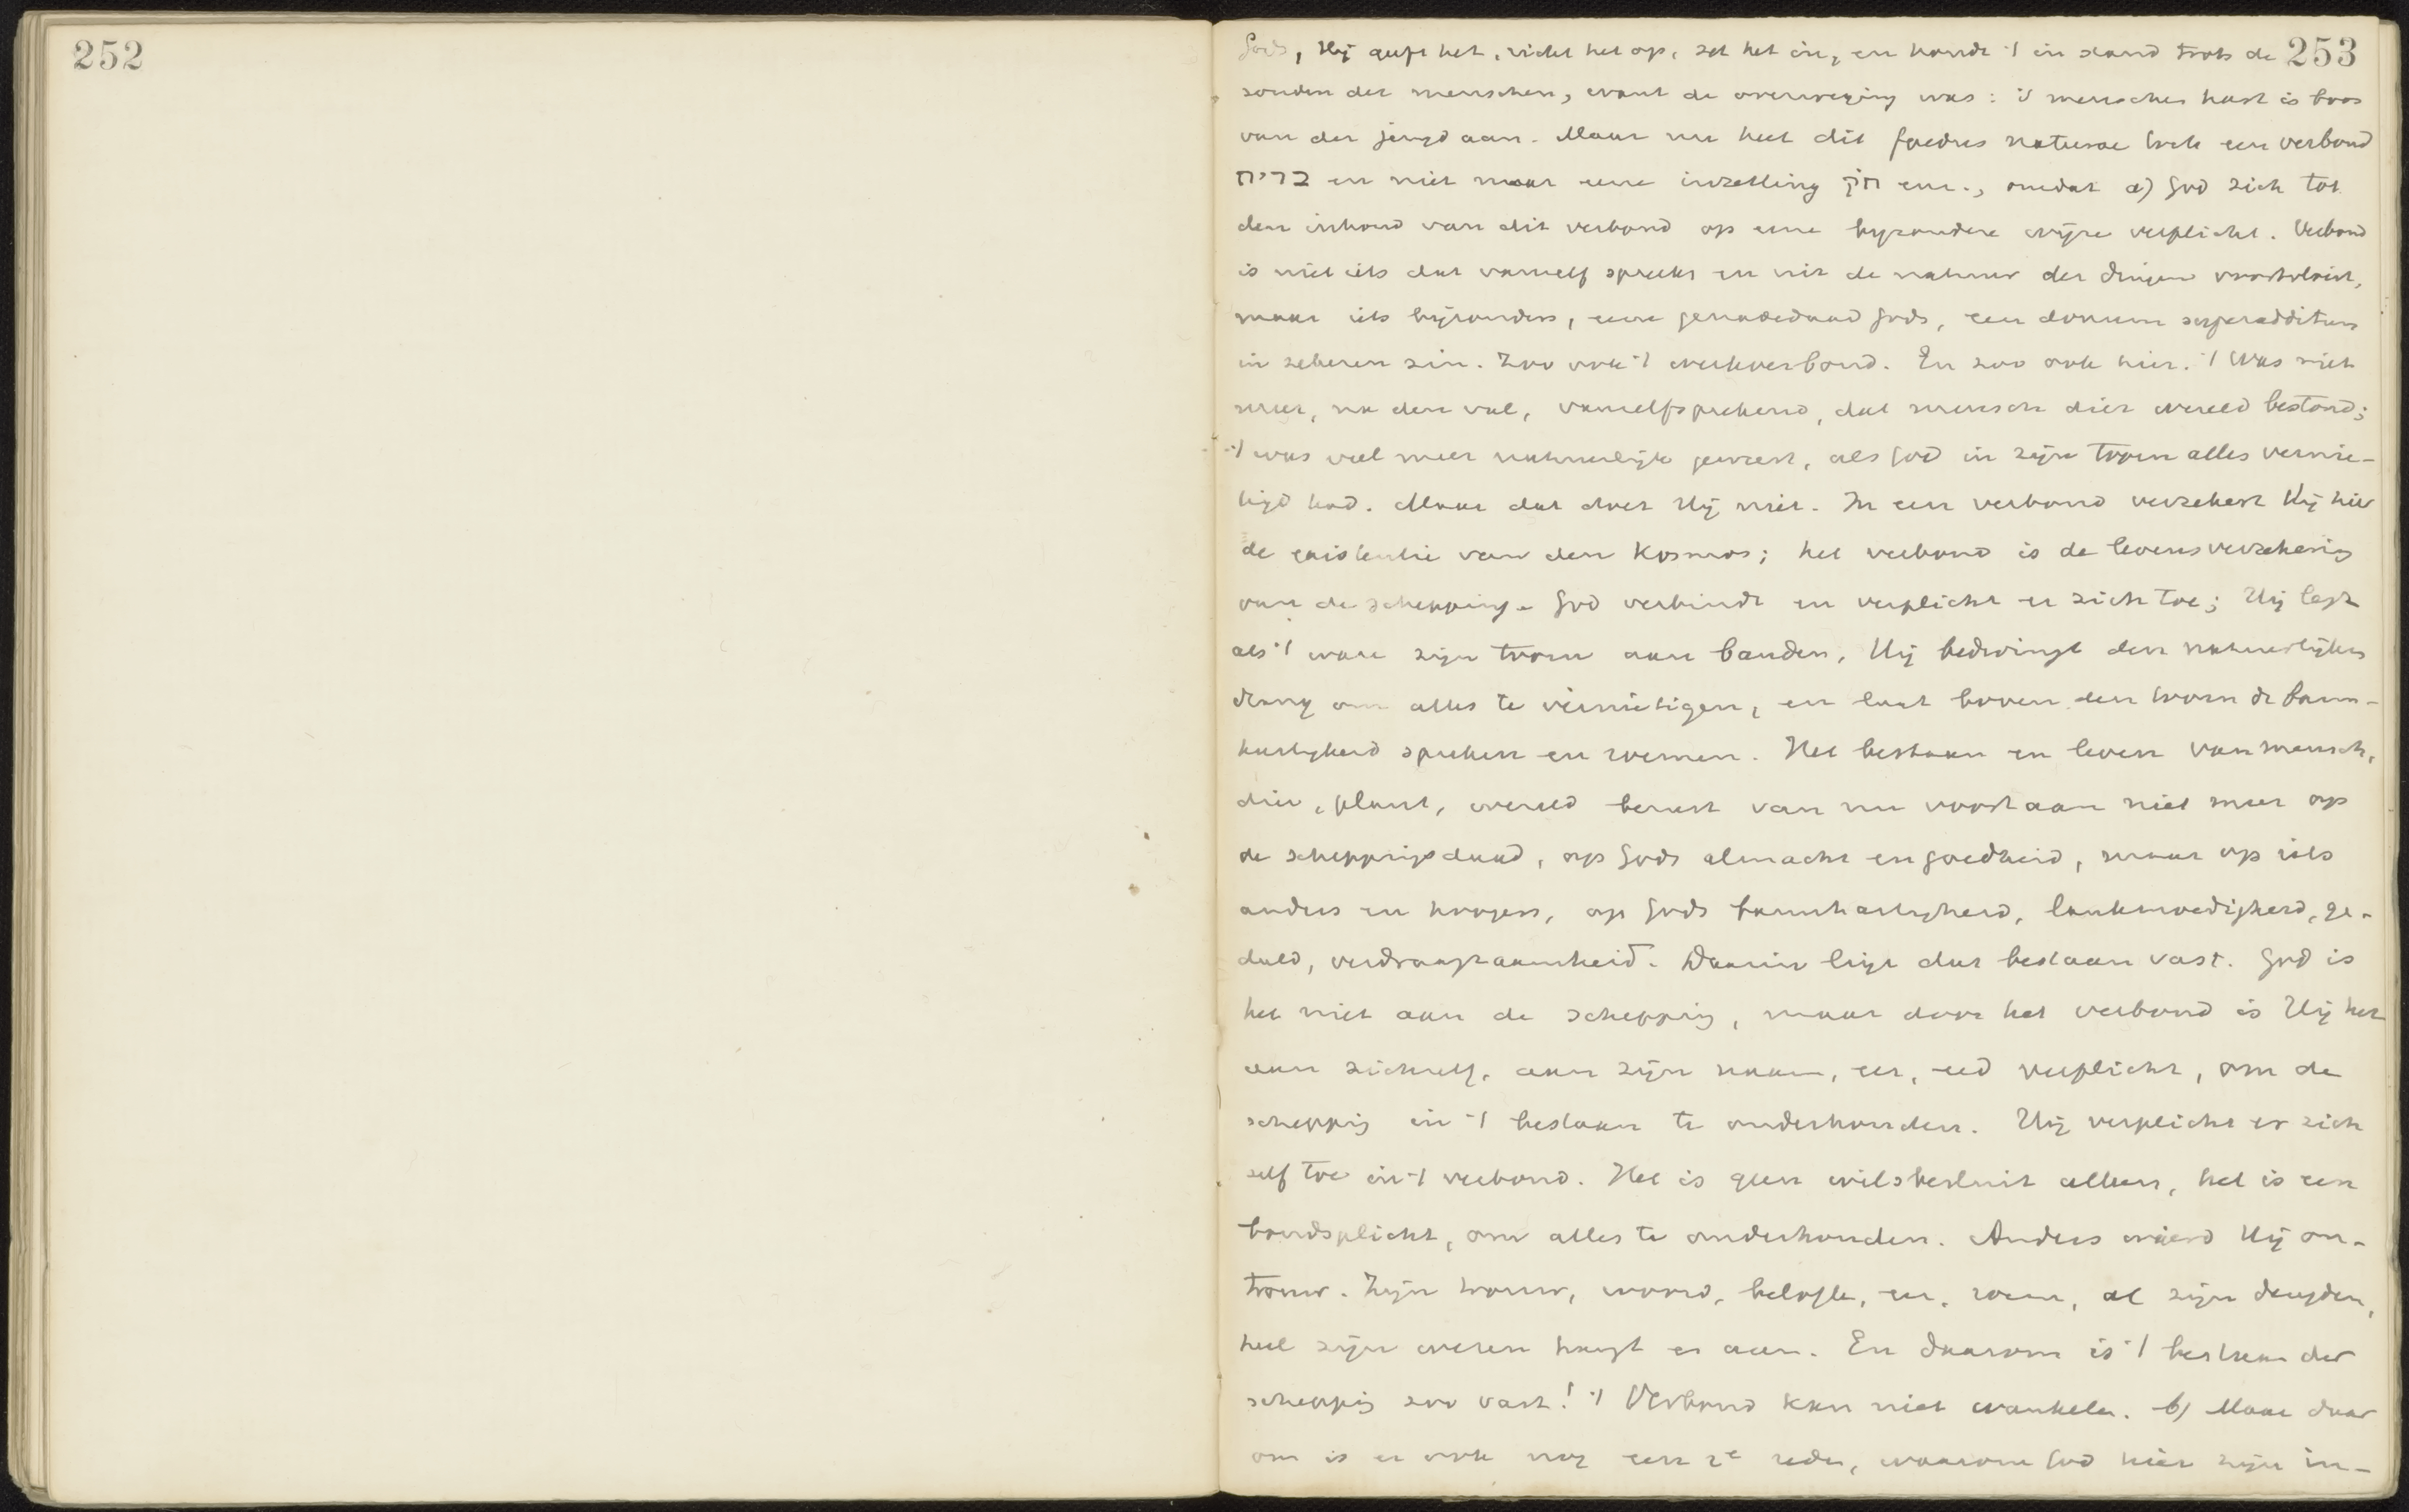 252
253
Gods, Hij geeft het, richt het op, zet het in, en houdt 't in stand trots de
zonden der menschen, want de overweging was: 's menschen hart is boos
van der jeugd aan. Maar nu heet dit foedus naturae toch een verbond
ברית en niet maar eene inzetting חֹק enz., omdat a) God zich tot
den inhoud van dit verbond op eene byzondere wijze verplicht. Verbond
is niet iets dat vanzelf spreekt en uit de natuur der dingen voortvloeit,
maar iets bijzonders, eene genadedaad Gods, een donum superadditum
in zekeren zin. Zoo ook 't werkverbond. En zoo ook hier. 't Was niet
meer, na den val, vanzelfsprekend, dat mensch dier wereld bestond;
't was veel meer natuurlijk geweest, als God in zijn toorn alles vernie-
tigd had. Maar dat doet Hij niet. In een verbond verzekert Hij hier
de existentie van den Kosmos; het verbond is de levensverzekering
van de schepping. God verbindt en verplicht er zich toe; Hij legt
als 't ware zijn toorn aan banden, Hij bedwingt den natuurlijken
drang om alles te vernietigen, en laat boven den toorn de barm-
hartigheid spreken en roemen. Het bestaan en leven van mensch,
dier, plant, wereld berust van nu voortaan niet meer op
de scheppingsdaad, op Gods almacht en goedheid, maar op iets
anders en hoogers, op Gods barmhartigheid, lankmoedigheid, ge-
duld, verdraagzaamheid. Daarin ligt dat bestaan vast. God is
het niet aan de schepping, maar door het verbond is Hij het
aan zichzelf, aan zijn naam, eer, eed verplicht, om de
schepping in 't bestaan te onderhouden. Hij verplicht er zich
zelf toe in 't verbond. Het is geen wilsbesluit alleen, het is een
bondsplicht, om alles te onderhouden. Anders wierd Hij on-
trouw. Zijn trouw, woord, belofte, eer, roem, al zijn deugden,
heel zijn wezen hangt er aan. En daarom is 't bestaan der
schepping zoo vast! 't Verbond kan niet wankelen. b) Maar daar
om is er ook nog een 2e reden, waarom God hier zijn in-